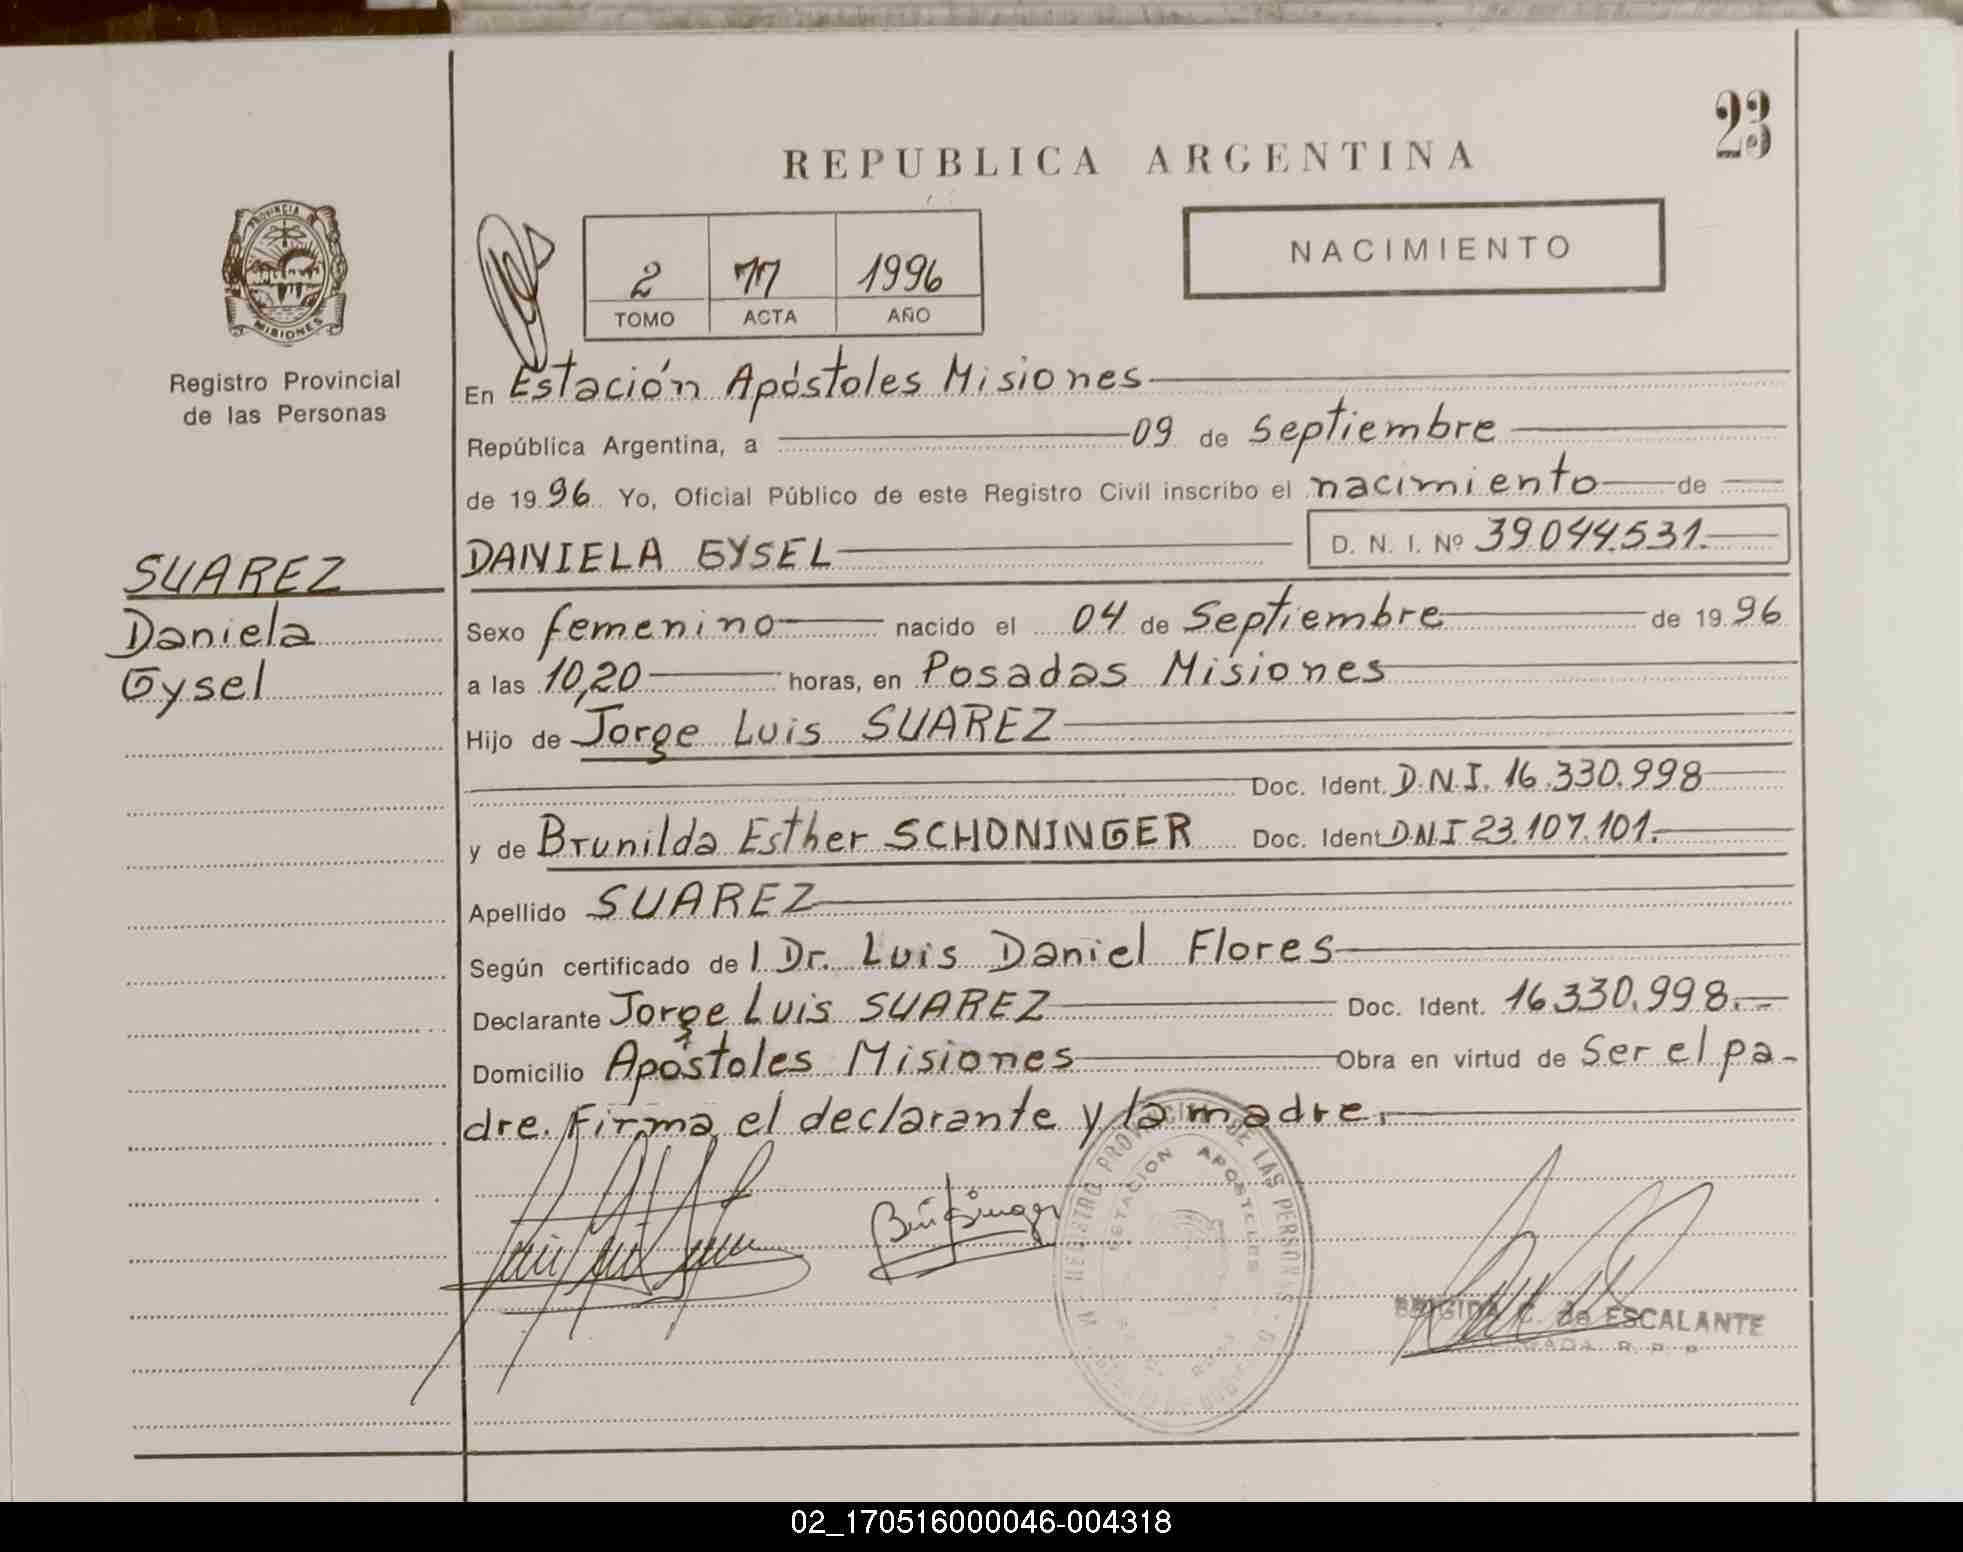 23
REPUBLICA ARGENTINA
PROVINCIA DE
MISIONES
Registro Provincial
de las Personas
NACIMIENTO
2 77 1996
TOMO ACTA AÑO
SUAREZ
Daniela
Gysel
En Estación Apóstoles Misiones
República Argentina, a 09 de Septiembre
de 19 96 Yo, Oficial Público de este Registro Civil inscribo el nacimiento de
DANIELA GYSEL D. N. I. Nº 39.044.531.
Sexo femenino nacido el 04 de Septiembre de 19 96
a las 10,20 horas, en Posadas Misiones
Hijo de Jorge Luis SUAREZ
Doc. Ident. D.N.I. 16.330.998
y de Brunilda Esther SCHONINGER Doc. Ident D.N.I 23.107.101.
Apellido SUAREZ
Según certificado de l Dr. Luis Daniel Flores
Declarante Jorge Luis SUAREZ Doc. Ident. 16.330.998.
Domicilio Apóstoles Misiones Obra en virtud de Ser el pa-
dre. Firma el declarante y la madre.
REGISTRO PROVINCIAL DE LAS PERSONAS
ESTACION APOSTOLES
BRIGIDA C. de ESCALANTE
R. P. P.
02_170516000046-004318